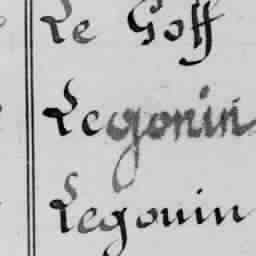 Le Goff
Legonin
Legouin